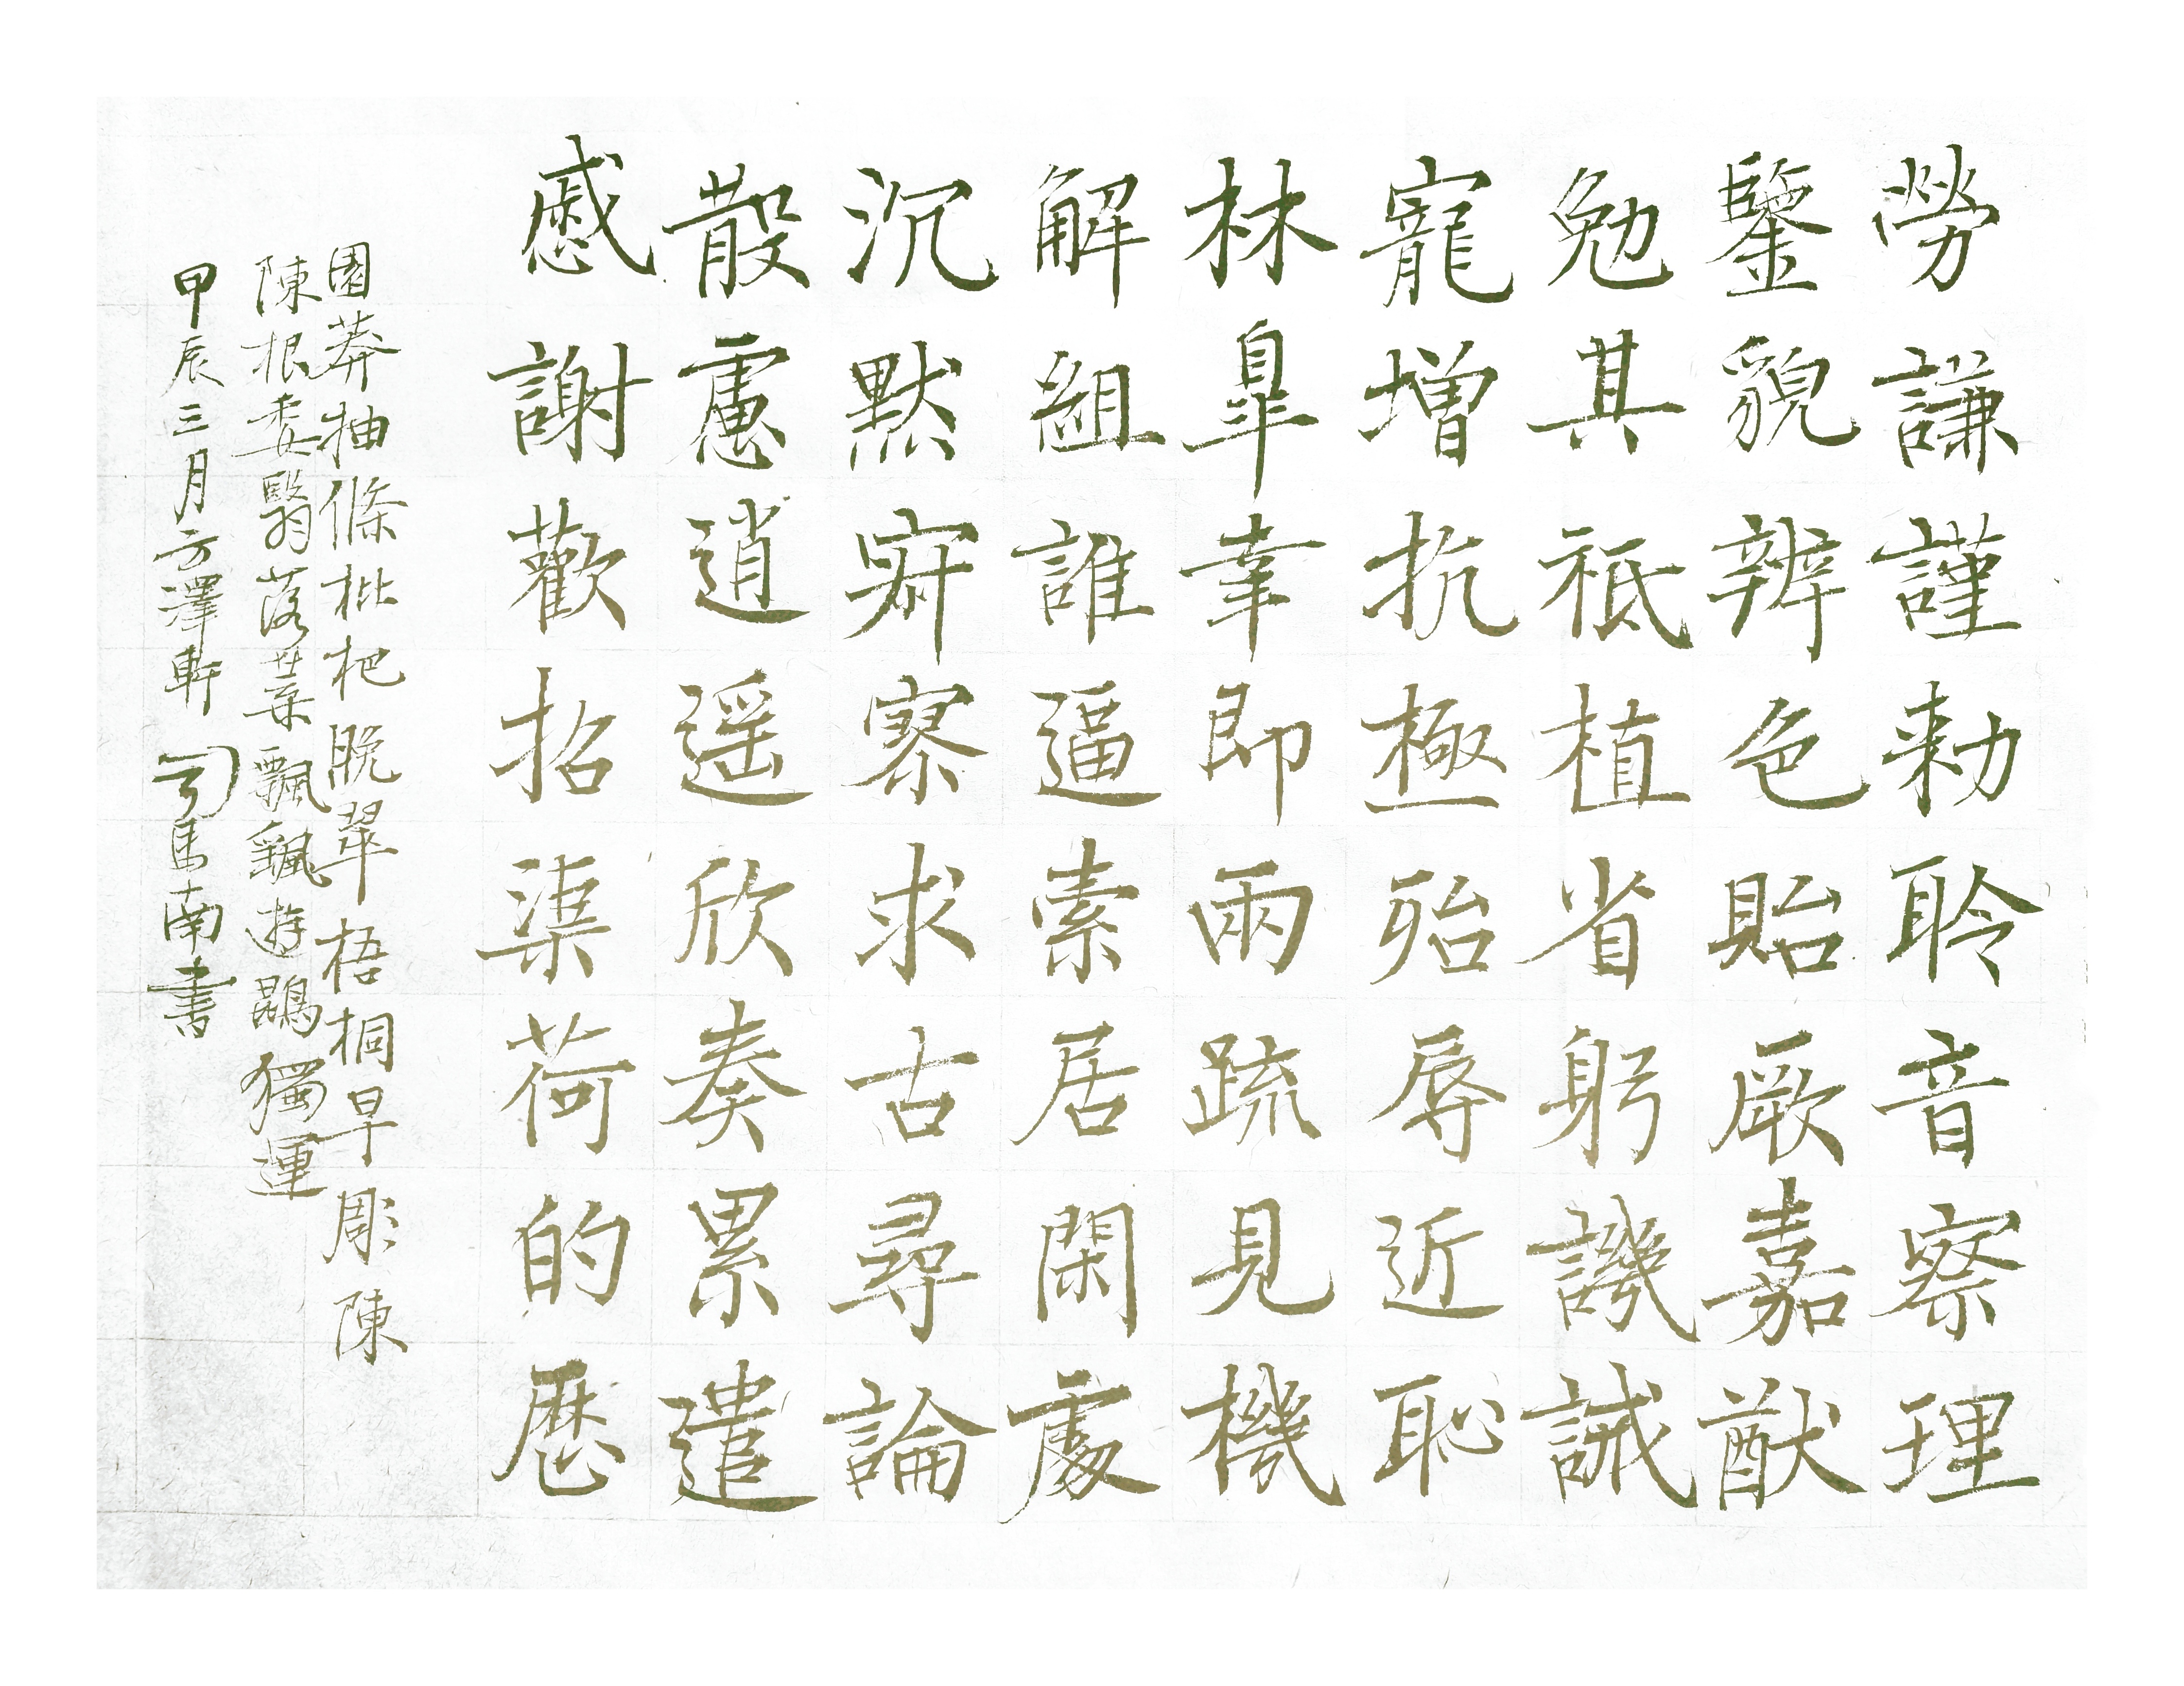 勞謙謹勅聆音察理
鑒貌辨色貽厥嘉猷
勉其祗植省躬譏誡
寵增抗極殆辱近恥
林皐幸即兩疏見機
解組誰逼索居閑處
沉默寂寥求古尋論
散慮逍遥欣奏累遣
慼謝歡招渠荷的歷
園莽抽條枇杷晚翠梧桐早彫陳
陳根委翳落葉飄颻遊鵾獨運
甲辰三月方澤軒司馬南書